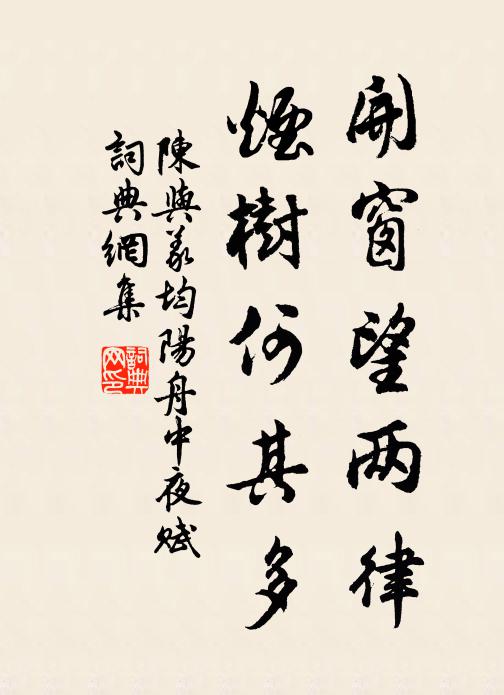 開窗望两律
煙樹何其多
陳與義均陽舟中夜賦
詞典網集
詞典网印